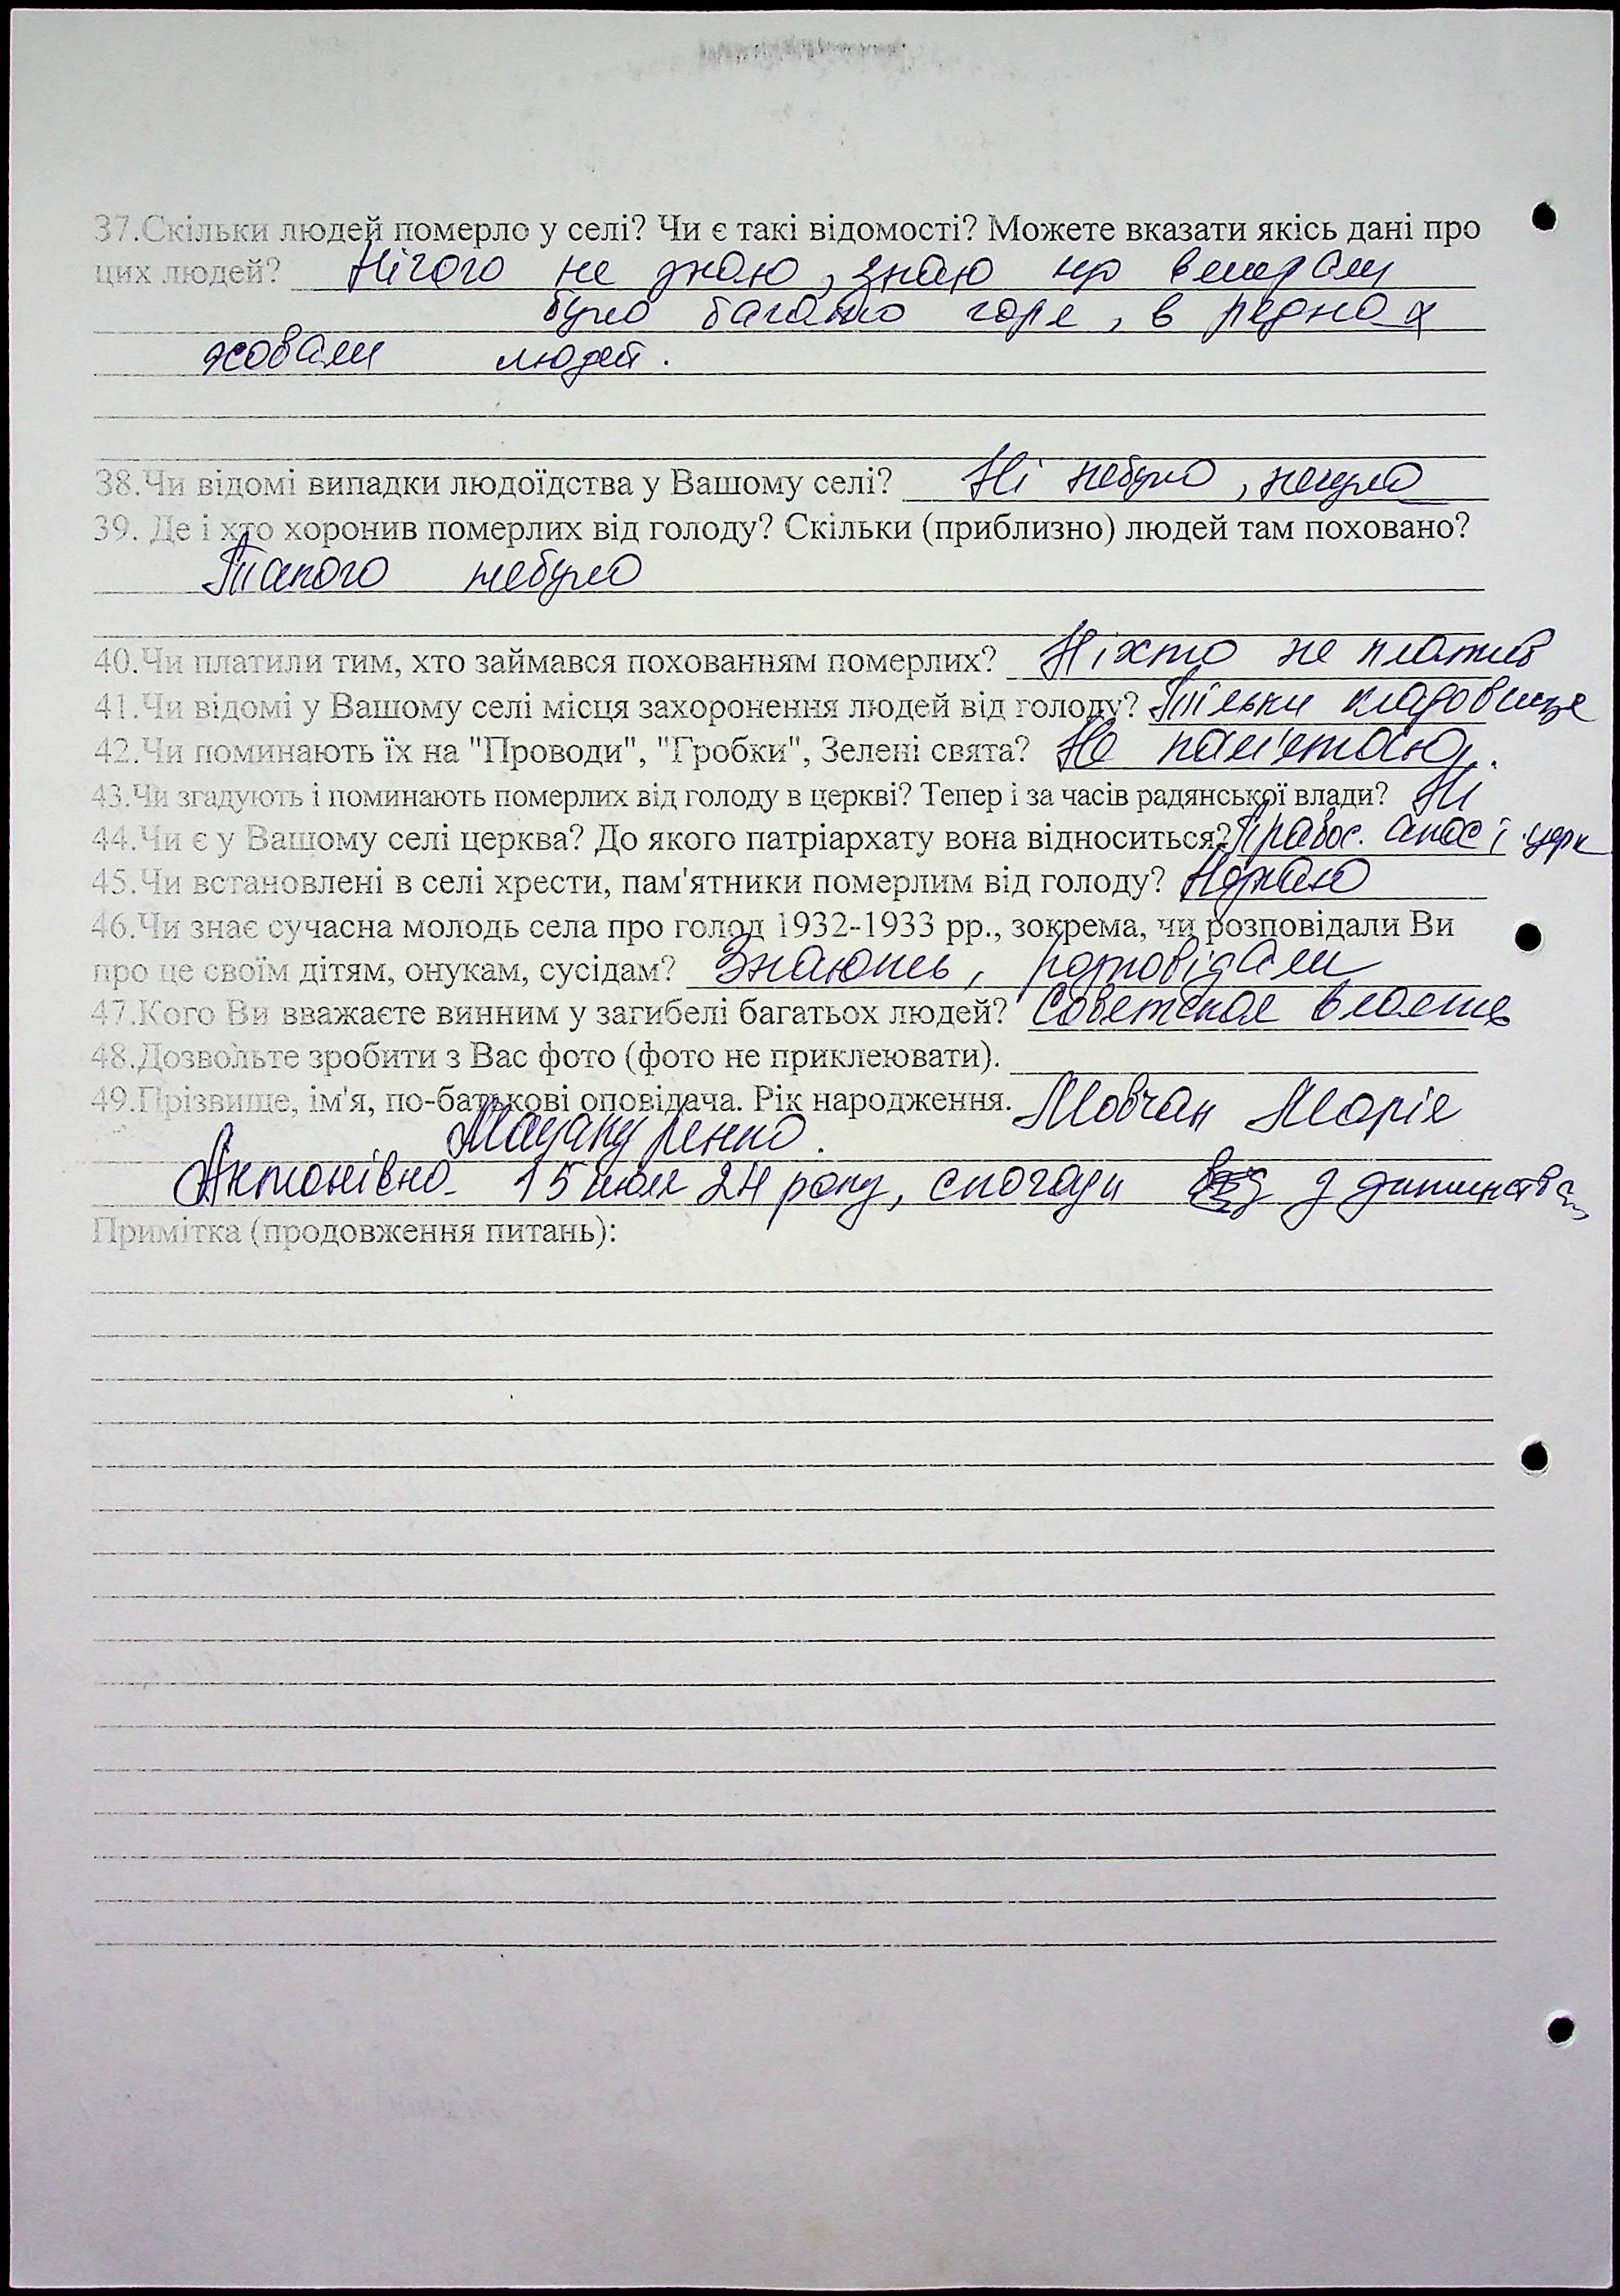 37.Скільки людей померло у селі? Чи є такі відомості? Можете вказати якісь дані про
цих людей? Нічого не знаю, знаю що вмерали
було багато горя, в ряднах
ховали людей.
38.Чи відомі випадки людоїдства у Вашому селі? Ні небуло, нечула
39. Де і хто хоронив померлих від голоду? Скільки (приблизно) людей там поховано?
Такого небуло
40.Чи платили тим, хто займався похованням померлих? Ніхто не платив
41.Чи відомі у Вашому селі місця захоронення людей від голоду? Тільки кладовище
42.Чи поминають їх на "Проводи", "Гробки", Зелені свята? Не пам'ятаю.
43.Чи згадують і поминають померлих від голоду в церкві? Тепер і за часів радянської влади? Ні
44.Чи є у Вашому селі церква? До якого патріархату вона відноситься? Правос. церк
45.Чи встановлені в селі хрести, пам'ятники померлим від голоду? Незнаю
46.Чи знає сучасна молодь села про голод 1932-1933 рр., зокрема, чи розповідали Ви
про це своїм дітям, онукам, сусідам? Знають, розповідали
47.Кого Ви вважаєте винним у загибелі багатьох людей? Советская власть
48.Дозвольте зробити з Вас фото (фото не приклеювати).
49.Прізвище, ім'я, по-батькові оповідача. Рік народження. Мовчан Марія
Антонівна 15 июля 24 року, спогади з дитинства
Примітка (продовження питань):